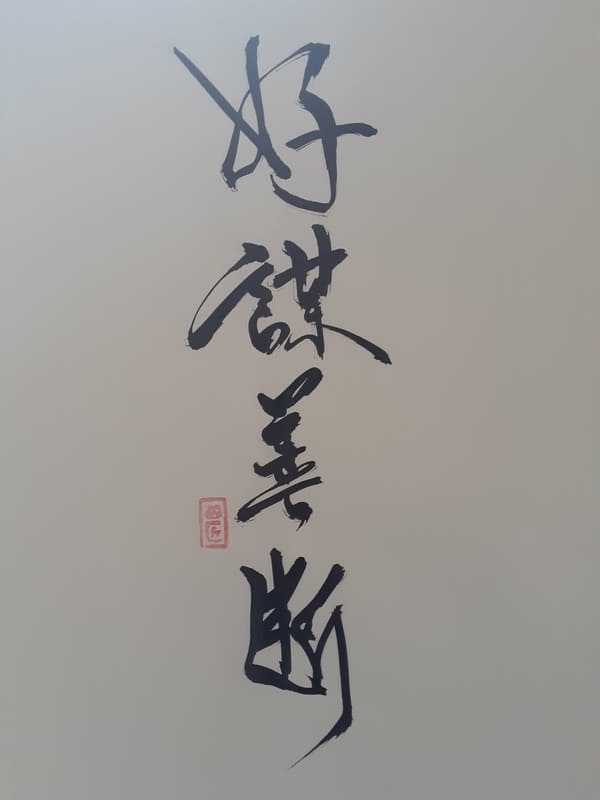 好謀善斷